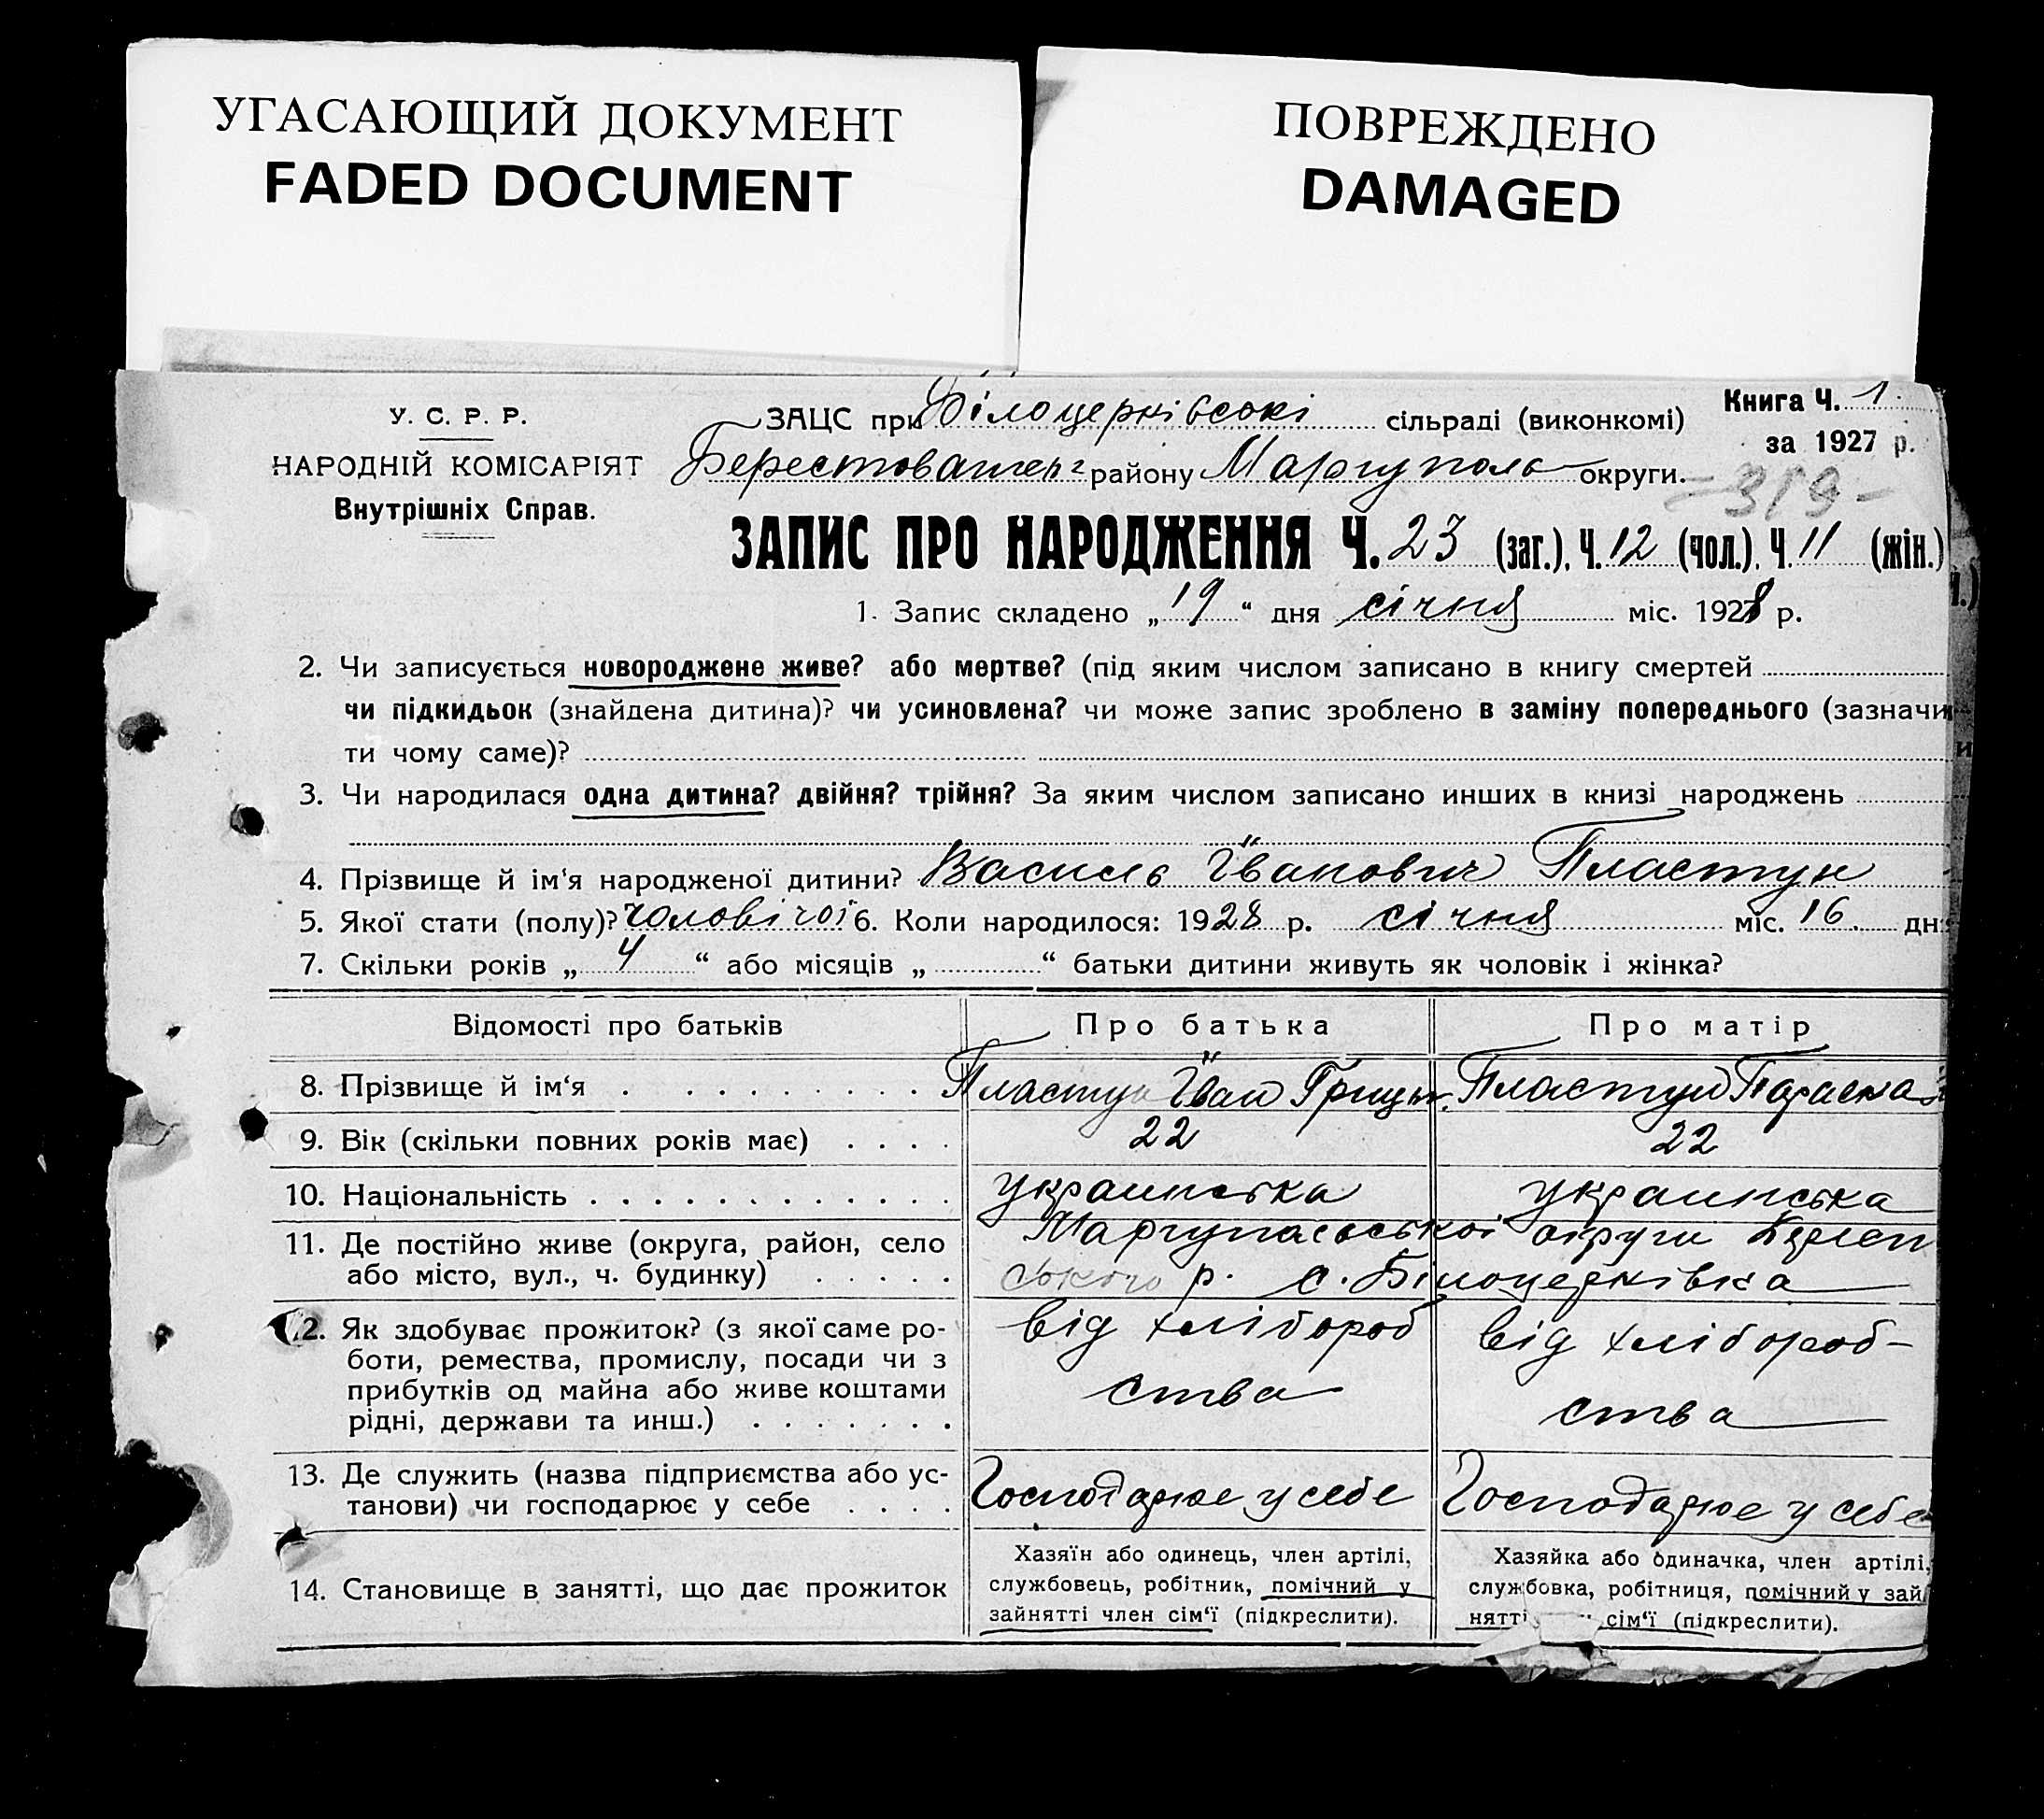 УГАСАЮЩИЙ ДОКУМЕНТ
FADED DOCUMENT
ПОВРЕЖДЕНО
DAMAGED
У. С. Р. Р.
НАРОДНІЙ КОМІСАРІЯТ
Внутрішніх Справ.
ЗАЦС при Білоцерківські сільраді (виконкомі)
Книга Ч. 1.
за 1927 р.
району Маріуполь округи.
-319-
ЗАПИС ПРО НАРОДЖЕННЯ Ч. 23 (заг.), Ч. 12 (чол.), Ч. 11 (жін.)
1. Запис складено „19“ дня січня міс. 1928 р.
2. Чи записується новороджене живе? або мертве? (під яким числом записано в книгу смертей
чи підкидьок (знайдена дитина)? чи усиновлена? чи може запис зроблено в заміну попереднього (зазначи-
ти чому саме)?
3. Чи народилася одна дитина? двійня? трійня? За яким числом записано инших в книзі народжень
4. Прізвище й ім‘я народженої дитини? Василь Іванович Пластун
5. Якої стати (полу)? чоловічої 6. Коли народилося: 1928 р. січня міс. 16. дня
7. Скільки років „4“ або місяців „ “ батьки дитини живуть як чоловік і жінка?
Відомості про батьків
Про батька
Про матір
8. Прізвище й ім‘я
Пластун Іван Гриць.
Пластун Параска
9. Вік (скільки повних років має)
22
22
10. Національність
украинська
украинська
11. Де постійно живе (округа, район, село
або місто, вул., ч. будинку)
Маріупольської округи
ського р. с. Білоцерківка
12. Як здобуває прожиток? (з якої саме ро-
боти, ремества, промислу, посади чи з
прибутків од майна або живе коштами
рідні, держави та инш.)
від хлібороб
ства
від хлібороб-
ства
13. Де служить (назва підприємства або ус-
танови) чи господарює у себе
Господарює у себе
Господарює у себе
14. Становище в занятті, що дає прожиток
Хазяїн або одинець, член артілі,
службовець, робітник, помічний у
зайнятті член сім‘ї (підкреслити).
Хазяйка або одиначка, член артілі,
службовка, робітниця, помічний у зай
нятті сім‘ї (підкреслити).